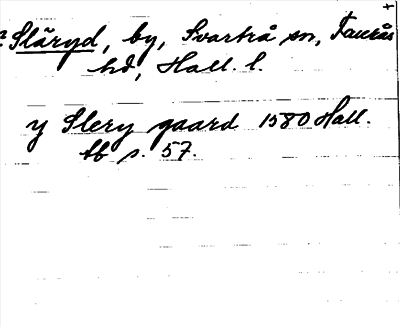 Släryd, by, Svartrå sn, Faurås
hd, Hall. l.
y Slery gaard 1580 Hall.
tb s. 57.